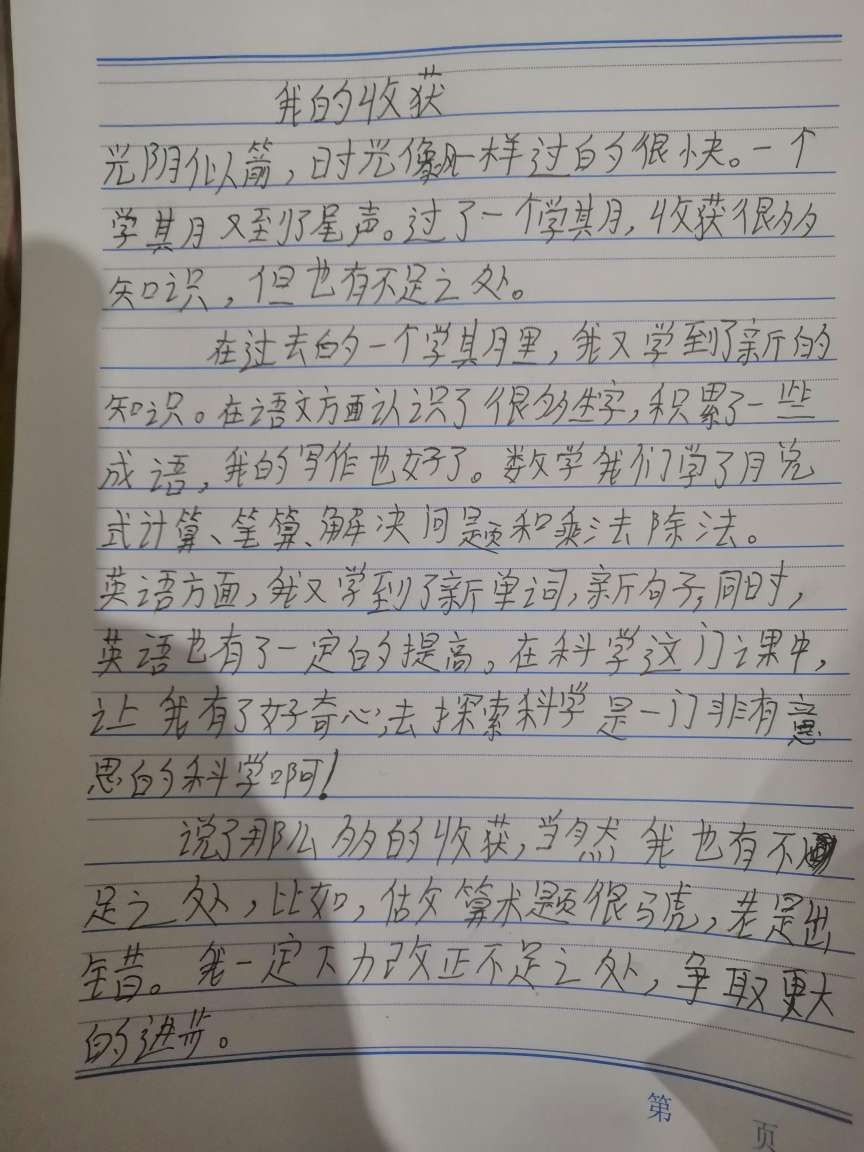 我的收获
光阴似箭，时光像飞一样过的很快。一个
学期又到了尾声。过了一个学期，收获很多
知识，但也有不足之处。
在过去的一个学期里，我又学到了新的
知识。在语文方面认识了很多生字，积累了一些
成语，我的写作也好了。数学我们学了脱
式计算、笔算、解决问题和乘法除法。
英语方面，我又学到了新单词，新句子，同时，
英语也有了一定的提高。在科学这门课中，
让我有了好奇心，去探索科学是一门非有意
思的科学啊！
说了那么多的收获，当然我也有不
足之处，比如，做算术题很马虎，老是出
错。我一定下力改正不足之处，争取更大
的进步。
第 页